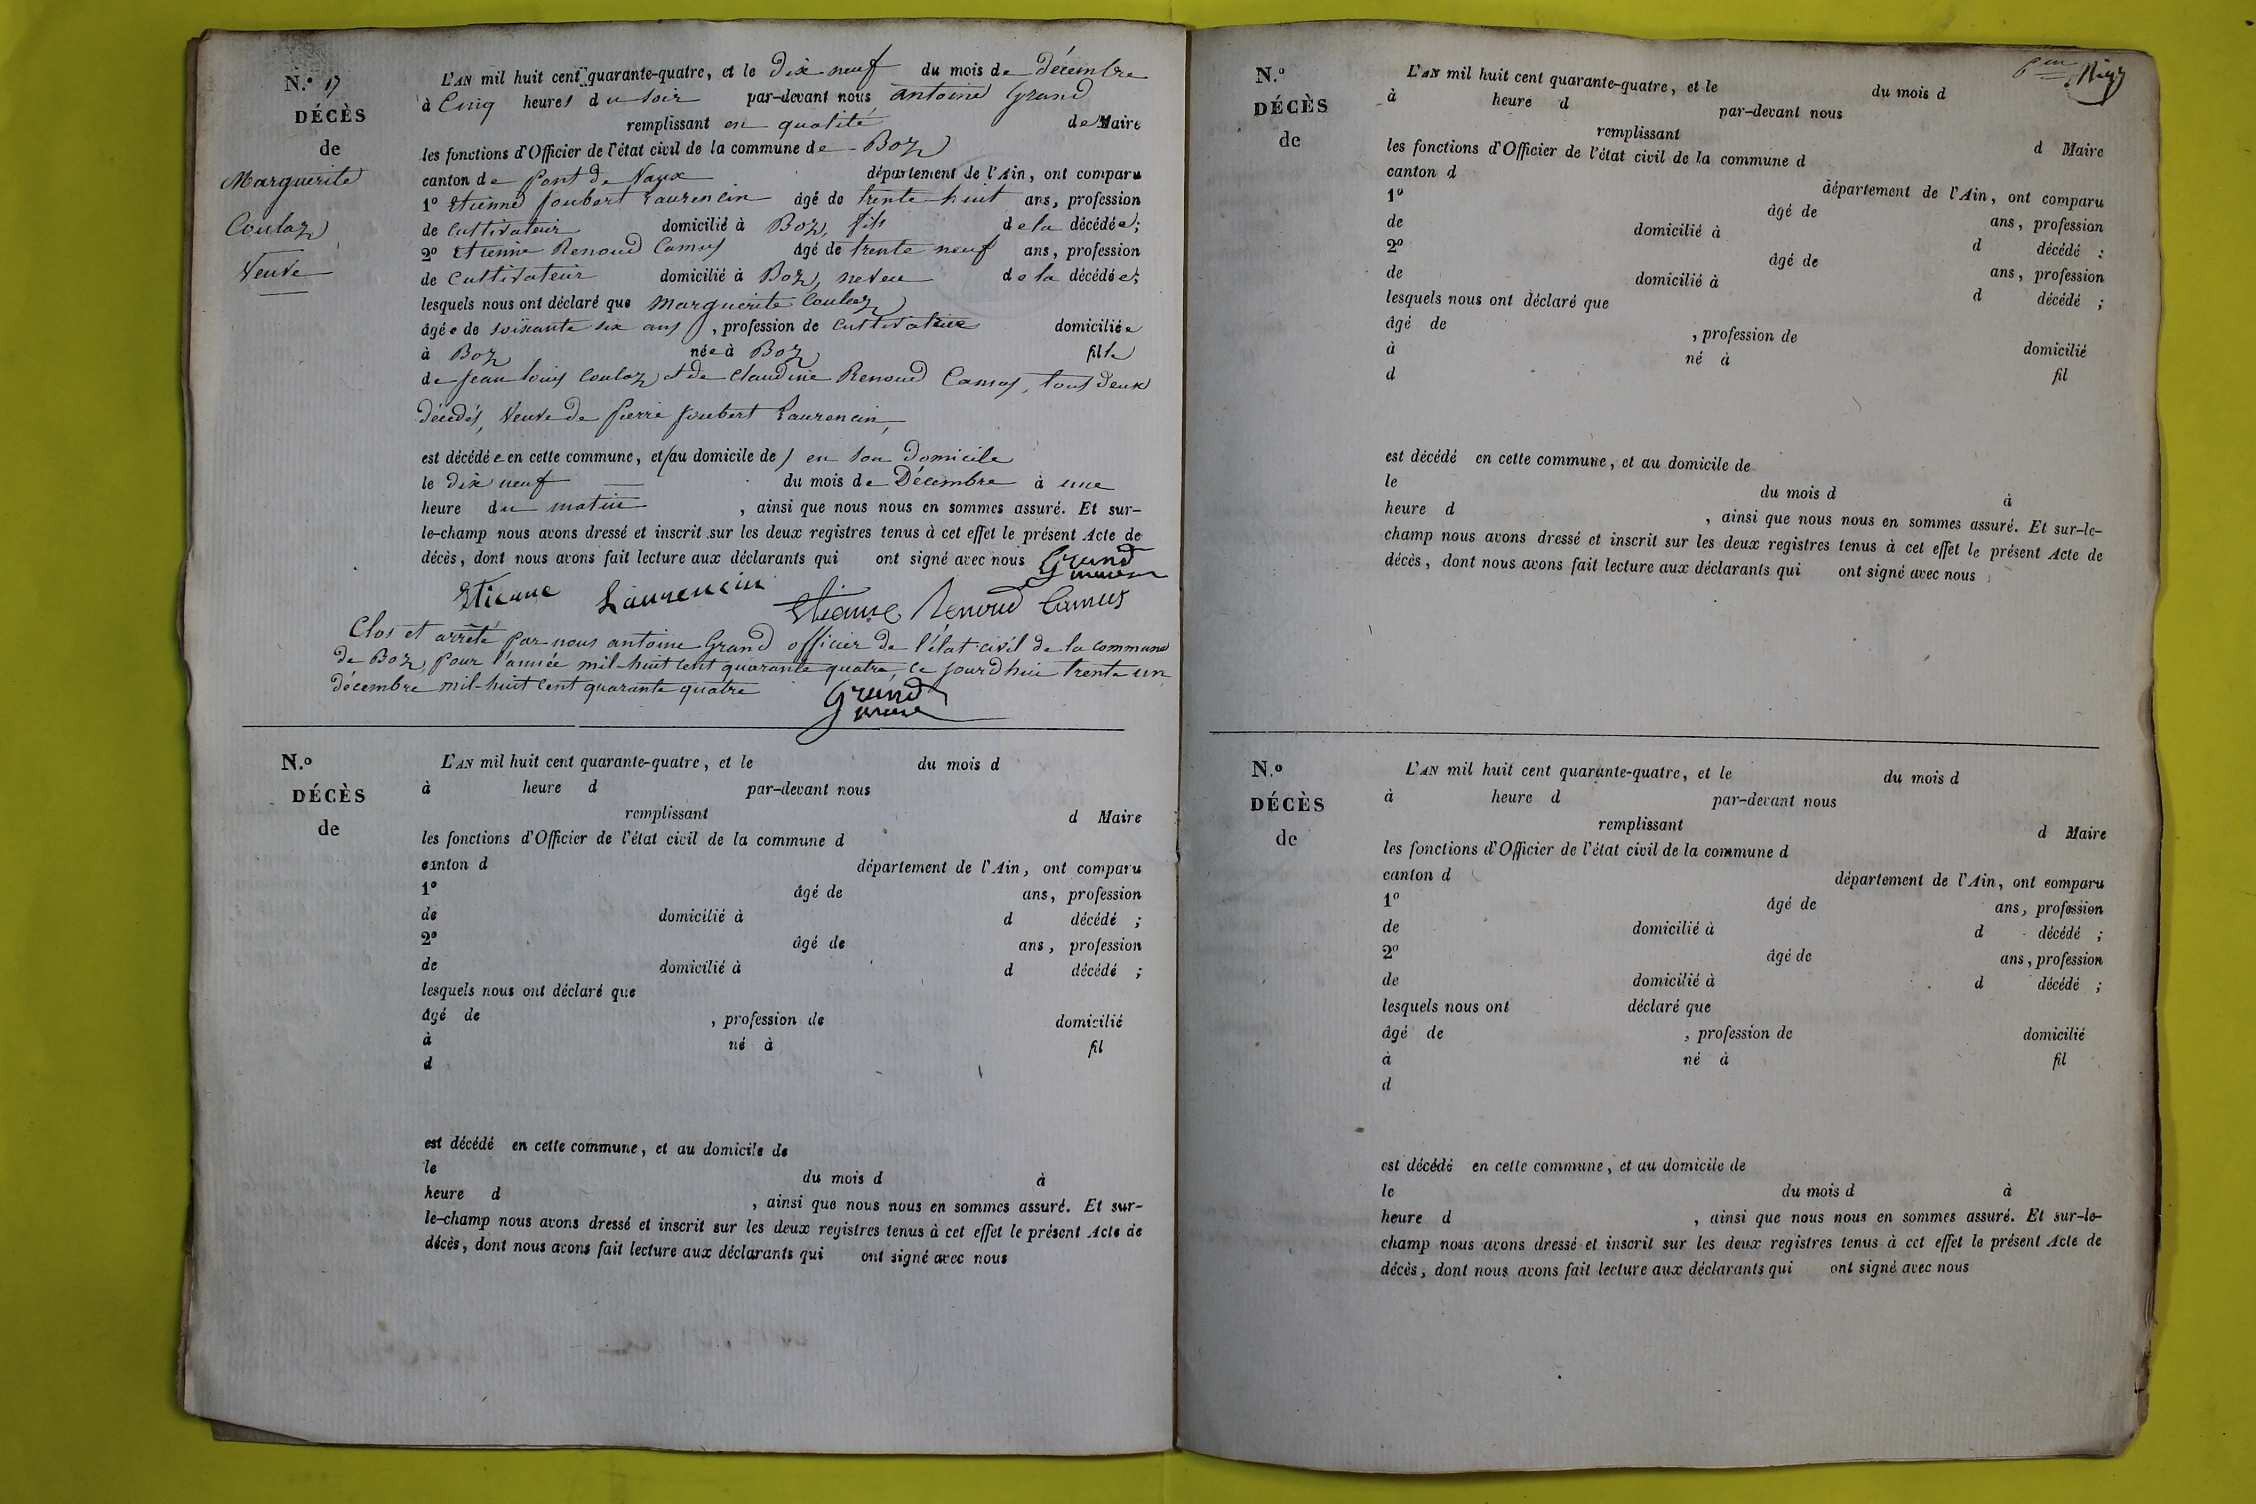 N.º 17
DÉCÈS
de
Marguerite
Coulaz
Veuve
L'AN mil huit cent quarante-quatre, et le dix neuf du mois de décembre
à Cinq heures du soir par-devant nous antoine Grand
remplissant en qualité de Maire
les fonctions d'Officier de l'état civil de la commune de Boz
canton de Pont de Vaux département de l'Ain, ont comparu
1º Etienne Joubert Laurencin âgé de trente huit ans, profession
de Cultivateur domicilié à Boz, fils de la décédée;
2º Etienne Renoud Camus âgé de trente neuf ans, profession
de Cultivateur domicilié à Boz, neveu de la décédée;
lesquels nous ont déclaré que Marguerite Coulaz
âgée de soixante six ans, profession de Cultivateur domiciliée
à Boz née à Boz fille
de Jean Louis Coulaz et de Claudine Renoud Camus, tous deux
décédés, Veuve de Pierre Joubert Laurencin,
est décédée en cette commune, et (au domicile de) en son domicile
le dix neuf du mois de Décembre à une
heure du matin, ainsi que nous nous en sommes assuré. Et sur-
le-champ nous avons dressé et inscrit sur les deux registres tenus à cet effet le présent Acte de
décès, dont nous avons fait lecture aux déclarants qui ont signé avec nous Grand
maire
Etienne Laurencin Etienne Renoud Camus
Clos et arrêté par nous antoine Grand officier de l'état civil de la commune
de Boz pour l'année mil-huit cent quarante quatre, ce jourd'hui trente un
décembre mil-huit cent quarante quatre
Grand
maire
N.º
DÉCÈS
de
L'AN mil huit cent quarante-quatre, et le du mois d
à heure d par-devant nous
remplissant d Maire
les fonctions d'Officier de l'état civil de la commune d
canton d département de l'Ain, ont comparu
1º âgé de ans, profession
de domicilié à d décédé ;
2º âgé de ans, profession
de domicilié à d décédé ;
lesquels nous ont déclaré que
âgé de , profession de domicilié
à né à fil
d
est décédé en cette commune, et au domicile de
le du mois d à
heure d , ainsi que nous nous en sommes assuré. Et sur-
le-champ nous avons dressé et inscrit sur les deux registres tenus à cet effet le présent Acte de
décès, dont nous avons fait lecture aux déclarants qui ont signé avec nous
N.º
DÉCÈS
de
L'AN mil huit cent quarante-quatre, et le du mois d
à heure d par-devant nous
remplissant d Maire
les fonctions d'Officier de l'état civil de la commune d
canton d département de l'Ain, ont comparu
1º âgé de ans, profession
de domicilié à d décédé ;
2º âgé de ans, profession
de domicilié à d décédé ;
lesquels nous ont déclaré que
âgé de , profession de domicilié
à né à fil
d
est décédé en cette commune, et au domicile de
le du mois d à
heure d , ainsi que nous nous en sommes assuré. Et sur-le-
champ nous avons dressé et inscrit sur les deux registres tenus à cet effet le présent Acte de
décès, dont nous avons fait lecture aux déclarants qui ont signé avec nous
N.º
DÉCÈS
de
L'AN mil huit cent quarante-quatre, et le du mois d
à heure d par-devant nous
remplissant d Maire
les fonctions d'Officier de l'état civil de la commune d
canton d département de l'Ain, ont comparu
1º âgé de ans, profession
de domicilié à d décédé ;
2º âgé de ans, profession
de domicilié à d décédé ;
lesquels nous ont déclaré que
âgé de , profession de domicilié
à né à fil
d
est décédé en cette commune, et au domicile de
le du mois d à
heure d , ainsi que nous nous en sommes assuré. Et sur-le-
champ nous avons dressé et inscrit sur les deux registres tenus à cet effet le présent Acte de
décès, dont nous avons fait lecture aux déclarants qui ont signé avec nous